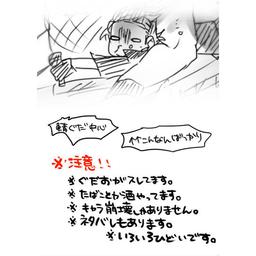 中心
こんなんばっかり
※注意!!
※ぐだおがスレてます。
※たばことか酒やってます。
※キャラ崩壊しゃありません。
※ネタバレもあります。
※いろいろひどいです。